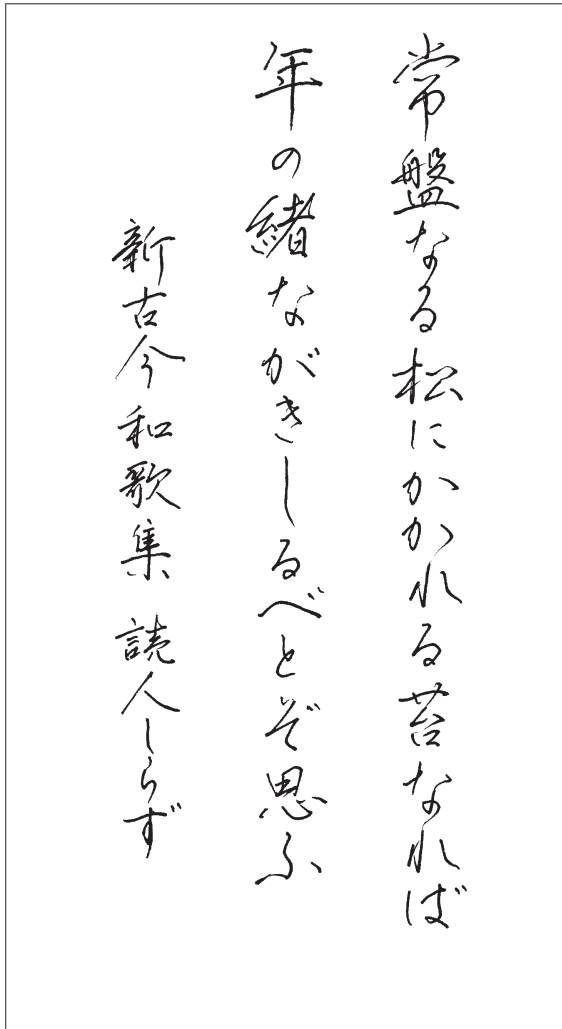 常盤なる松にかかれる苔なれば
年の緒ながきしるべとぞ思ふ
新古今和歌集 読人しらず